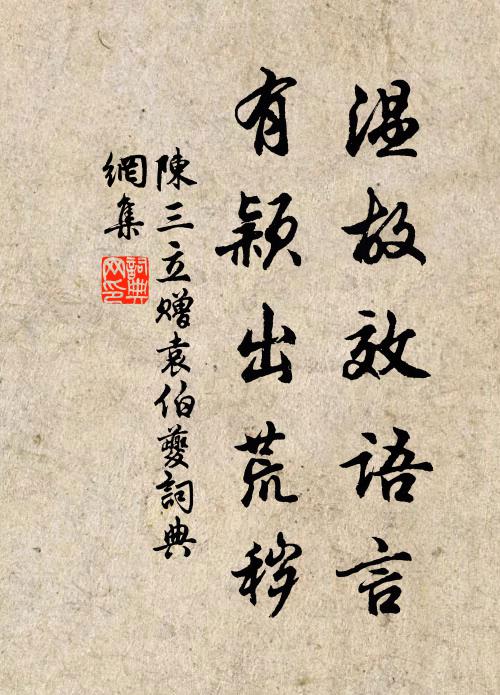 温故效语言
有颖出荒秽
陳三立赠袁伯夔詞典
網集
詞典網印